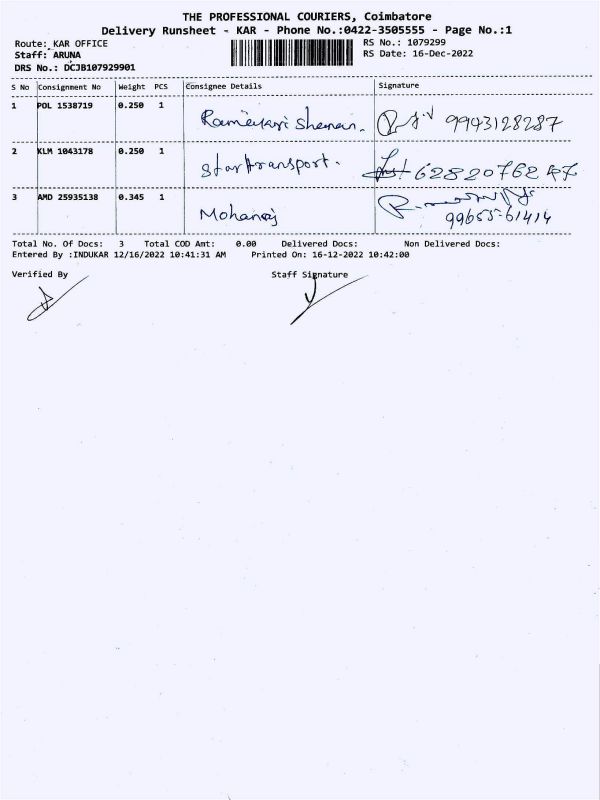 THE PROFESSIONAL COURIERS, Coimbatore
Delivery Runsheet - KAR - Phone No.:0422-3505555 - Page No.:1
Route: KAR OFFICE RS No.: 1079299
Staff: ARUNA RS Date: 16-Dec-2022
DRS No.: DCJB107929901
S No Consignment No Weight PCS Consignee Details Signature
1 POL 1538719 0.250 1 9943128287
2 KLM 1043178 0.250 1 Startransport. 6282076247
3 AMD 25935138 0.345 1 Mohanraj 99655-61414
Total No. Of Docs: 3 Total COD Amt: 0.00 Delivered Docs: Non Delivered Docs:
Entered By :INDUKAR 12/16/2022 10:41:31 AM Printed On: 16-12-2022 10:42:00
Verified By Staff Signature